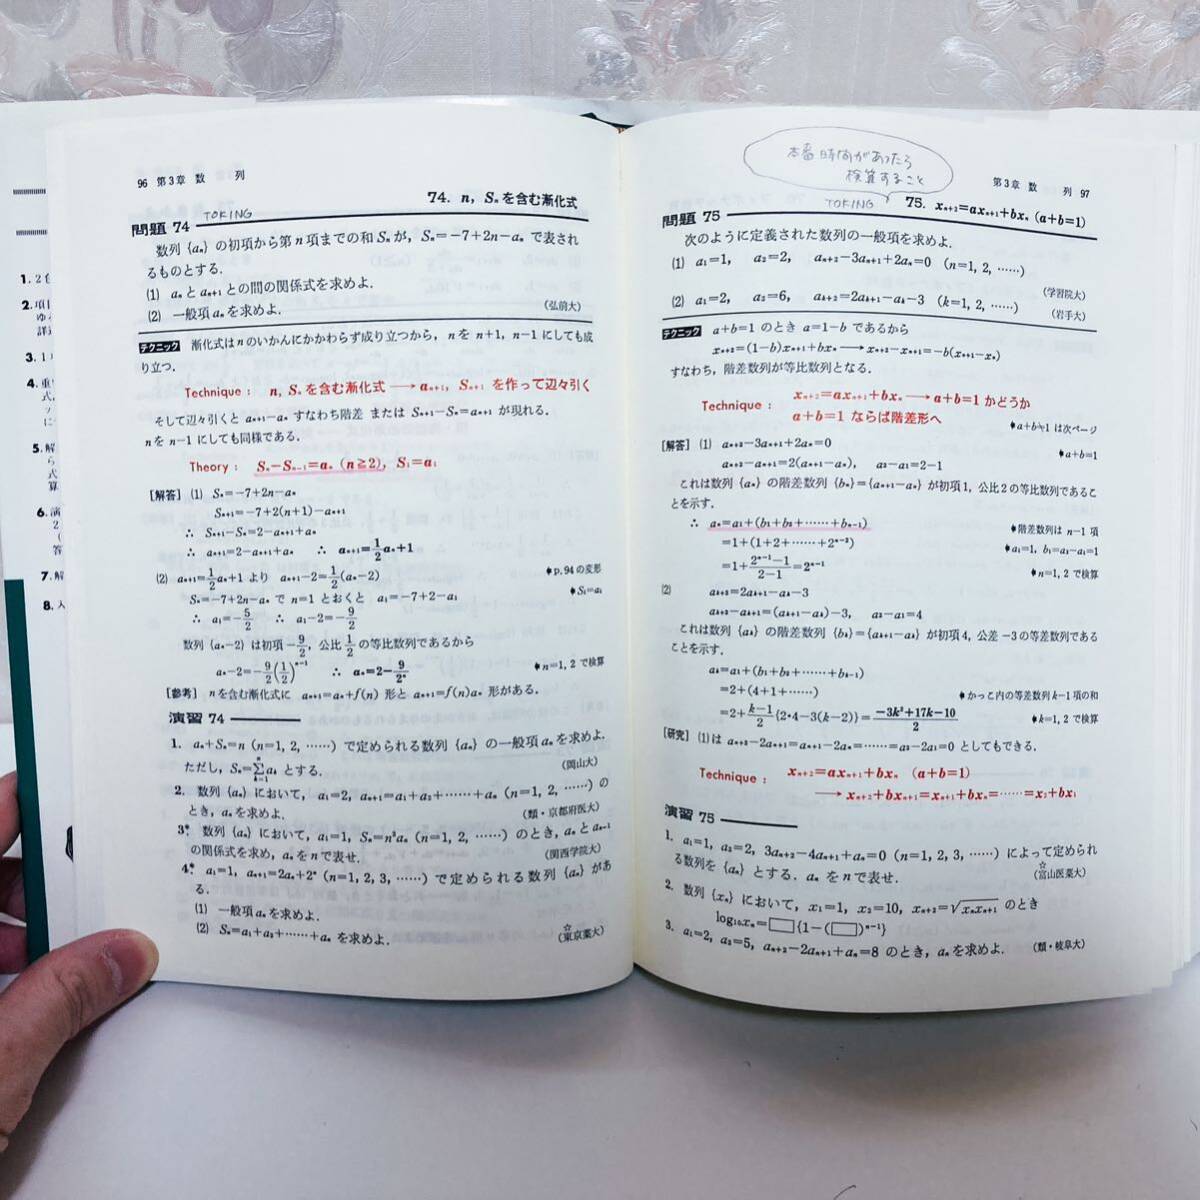 96 第3章 数 列
74. n, Sₙを含む漸化式
問題 74 TOKING
数列 {aₙ} の初項から第n項までの和Sₙが, Sₙ=-7+2n-aₙ で表され
るものとする.
(1) aₙとaₙ₊₁との間の関係式を求めよ.
(2) 一般項aₙを求めよ. (弘前大)
テクニック 漸化式はnのいかんにかかわらず成り立つから, nを n+1, n-1 にしても成
り立つ.
Technique: n, Sₙを含む漸化式 ⟶ aₙ₊₁, Sₙ₊₁ を作って辺々引く
そして辺々引くと aₙ₊₁-aₙ すなわち階差 または Sₙ₊₁-Sₙ=aₙ₊₁が現れる.
nを n-1 にしても同様である.
Theory: Sₙ-Sₙ₋₁=aₙ (n≧2), S₁=a₁
[解答] (1) Sₙ=-7+2n-aₙ
Sₙ₊₁=-7+2(n+1)-aₙ₊₁
∴ Sₙ₊₁-Sₙ=2-aₙ₊₁+aₙ
∴ aₙ₊₁=2-aₙ₊₁+aₙ ∴ aₙ₊₁=1/2 aₙ+1
(2) aₙ₊₁=1/2 aₙ+1 より aₙ₊₁-2=1/2(aₙ-2) ♦p.94の変形
Sₙ=-7+2n-aₙ で n=1 とおくと a₁=-7+2-a₁ ♦S₁=a₁
∴ a₁=-5/2 ∴ a₁-2=-9/2
数列 {aₙ-2} は初項 -9/2, 公比 1/2 の等比数列であるから
aₙ-2=-9/2(1/2)ⁿ⁻¹ ∴ aₙ=2-9/2ⁿ ♦n=1, 2 で検算
[参考] nを含む漸化式に aₙ₊₁=aₙ+f(n) 形と aₙ₊₁=f(n)aₙ 形がある.
演習 74
1. aₙ+Sₙ=n (n=1, 2, ……) で定められる数列 {aₙ} の一般項aₙを求めよ.
ただし, Sₙ=Σₖ₌₁ⁿ aₖ とする. (岡山大)
2. 数列 {aₙ} において, a₁=2, aₙ₊₁=a₁+a₂+……+aₙ (n=1, 2, ……) の
とき, aₙを求めよ. (類・京都府医大)
3* 数列 {aₙ} において, a₁=1, Sₙ=n²aₙ (n=1, 2, ……) のとき, aₙとaₙ₋₁
の関係式を求め, aₙをnで表せ. (関西学院大)
4* a₁=1, aₙ₊₁=2aₙ+2ⁿ (n=1, 2, 3, ……) で定められる数列 {aₙ} があ
る.
(1) 一般項aₙを求めよ.
(2) Sₙ=a₁+a₂+……+aₙ を求めよ. (東京薬大)
本番時間があったら
検算すること
第3章 数 列 97
TOKING 75. xₙ₊₂=axₙ₊₁+bxₙ (a+b=1)
問題 75
次のように定義された数列の一般項を求めよ.
(1) a₁=1, a₂=2, aₙ₊₂-3aₙ₊₁+2aₙ=0 (n=1, 2, ……)
(学習院大)
(2) a₁=2, a₂=6, aₖ₊₂=2aₖ₊₁-aₖ-3 (k=1, 2, ……)
(岩手大)
テクニック a+b=1 のとき a=1-b であるから
xₙ₊₂=(1-b)xₙ₊₁+bxₙ ⟶ xₙ₊₂-xₙ₊₁=-b(xₙ₊₁-xₙ)
すなわち, 階差数列が等比数列となる.
Technique: xₙ₊₂=axₙ₊₁+bxₙ ⟶ a+b=1 かどうか
a+b=1 ならば階差形へ
♦a+b≠1 は次ページ
[解答] (1) aₙ₊₂-3aₙ₊₁+2aₙ=0 ♦a+b=1
aₙ₊₂-aₙ₊₁=2(aₙ₊₁-aₙ), a₂-a₁=2-1
これは数列 {aₙ} の階差数列 {bₙ}={aₙ₊₁-aₙ} が初項1, 公比2の等比数列であるこ
とを示す.
∴ aₙ=a₁+(b₁+b₂+……+bₙ₋₁) ♦階差数列は n-1 項
=1+(1+2+……+2ⁿ⁻²) ♦a₁=1, b₁=a₂-a₁=1
=1+(2ⁿ⁻¹-1)/(2-1)=2ⁿ⁻¹ ♦n=1, 2 で検算
(2) aₖ₊₂=2aₖ₊₁-aₖ-3
aₖ₊₂-aₖ₊₁=(aₖ₊₁-aₖ)-3, a₂-a₁=4
これは数列 {aₖ} の階差数列 {bₖ}={aₖ₊₁-aₖ} が初項4, 公差-3の等差数列である
ことを示す.
aₖ=a₁+(b₁+b₂+……+bₖ₋₁)
=2+(4+1+……) ♦かっこ内の等差数列k-1項の和
=2+(k-1)/2{2·4-3(k-2)}=(-3k²+17k-10)/2 ♦k=1, 2 で検算
[研究] (1)は aₙ₊₂-2aₙ₊₁=aₙ₊₁-2aₙ=……=a₂-2a₁=0 としてもできる.
Technique: xₙ₊₂=axₙ₊₁+bxₙ (a+b=1)
⟶ xₙ₊₂+bxₙ₊₁=xₙ₊₁+bxₙ=……=x₂+bx₁
演習 75
1. a₁=1, a₂=2, 3aₙ₊₂-4aₙ₊₁+aₙ=0 (n=1, 2, 3, ……) によって定められ
る数列を {aₙ} とする. aₙをnで表せ. (富山医薬大)
2. 数列 {xₙ} において, x₁=1, x₂=10, xₙ₊₂=√(xₙxₙ₊₁) のとき
log₁₀xₙ=□{1-(□)ⁿ⁻¹}
3. a₁=2, a₂=5, aₙ₊₂-2aₙ₊₁+aₙ=8 のとき, aₙを求めよ. (類・岐阜大)
1.
2.
3.
4.
5.
6.
7. 解
8.